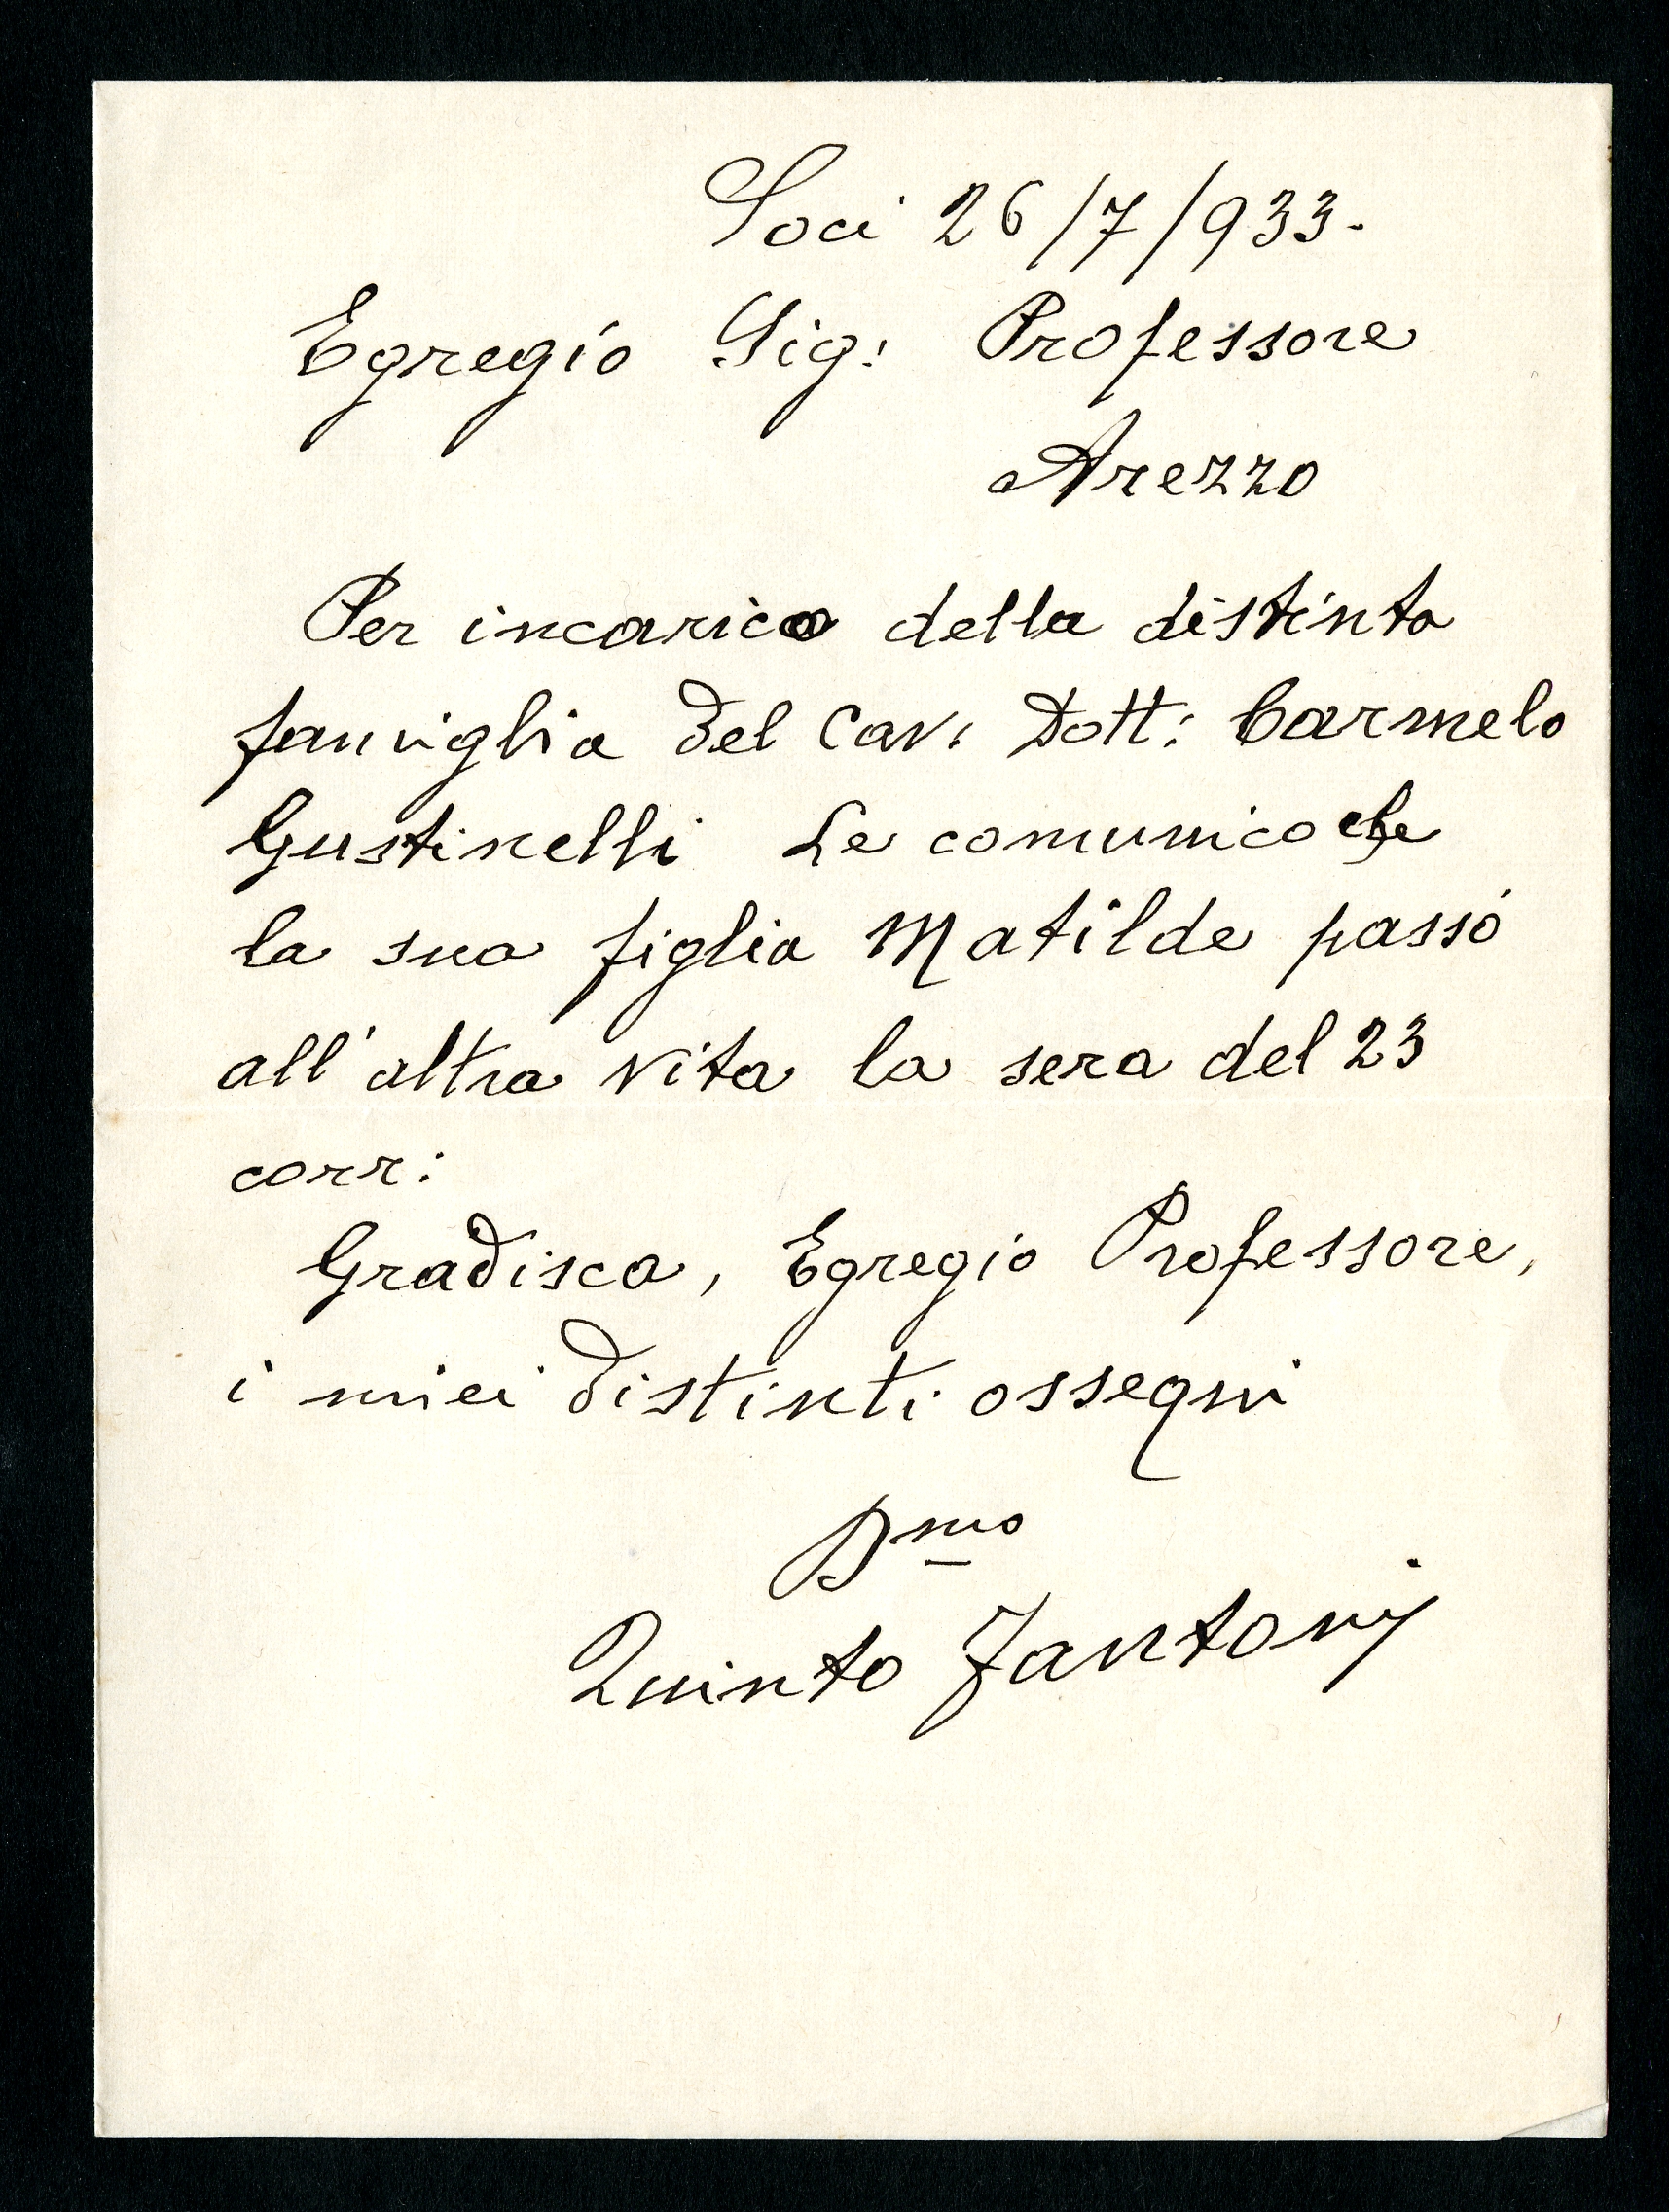 Soci 26/7/933.
Egregio Sig: Professore
Arezzo
Per incarico della distinta
famiglia del Cav. Dott: Carmelo
Gustinelli Le comunico che
la sua figlia Matilde passò
all'altra vita la sera del 23
corr:
Gradisca, Egregio Professore,
i miei distinti ossequi
Dmo
Quinto Fantoni